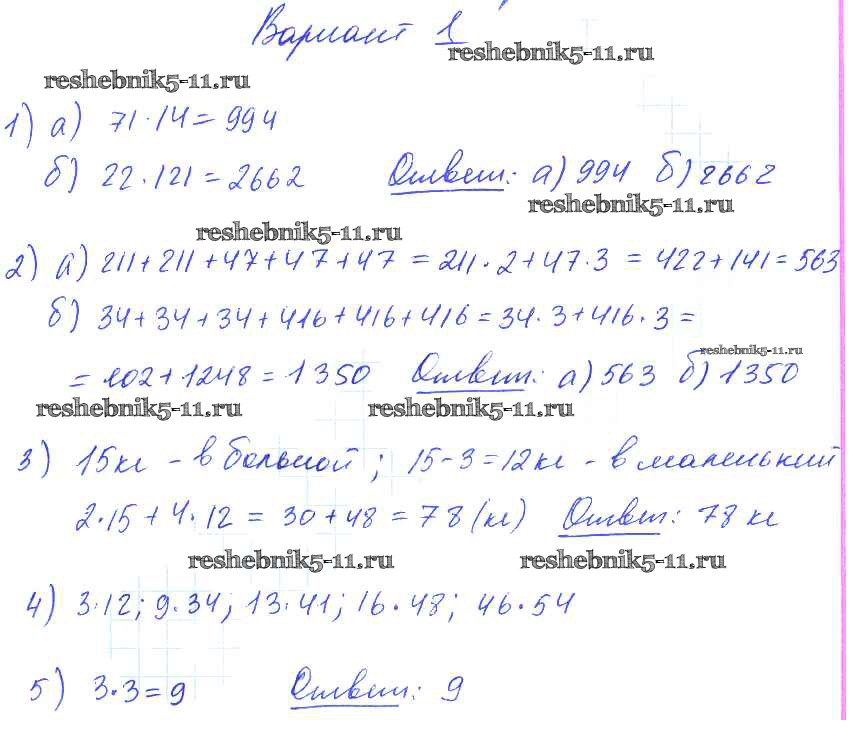 Вариант 1
reshebnik5-11.ru
reshebnik5-11.ru
1) а) 71·14=994
б) 22·121=2662 Ответ: а) 994 б) 2662
reshebnik5-11.ru
reshebnik5-11.ru
2) а) 211+211+47+47+47=211·2+47·3=422+141=563
б) 34+34+34+416+416+416=34·3+416·3=
reshebnik5-11.ru
=102+1248=1350 Ответ: а) 563 б) 1350
reshebnik5-11.ru reshebnik5-11.ru
3) 15кг - в большой; 15-3=12кг - в маленький
2·15+4·12=30+48=78(кг) Ответ: 78 кг
reshebnik5-11.ru reshebnik5-11.ru
4) 3·12; 9·34; 13·41; 16·48; 46·54
5) 3·3=9 Ответ: 9